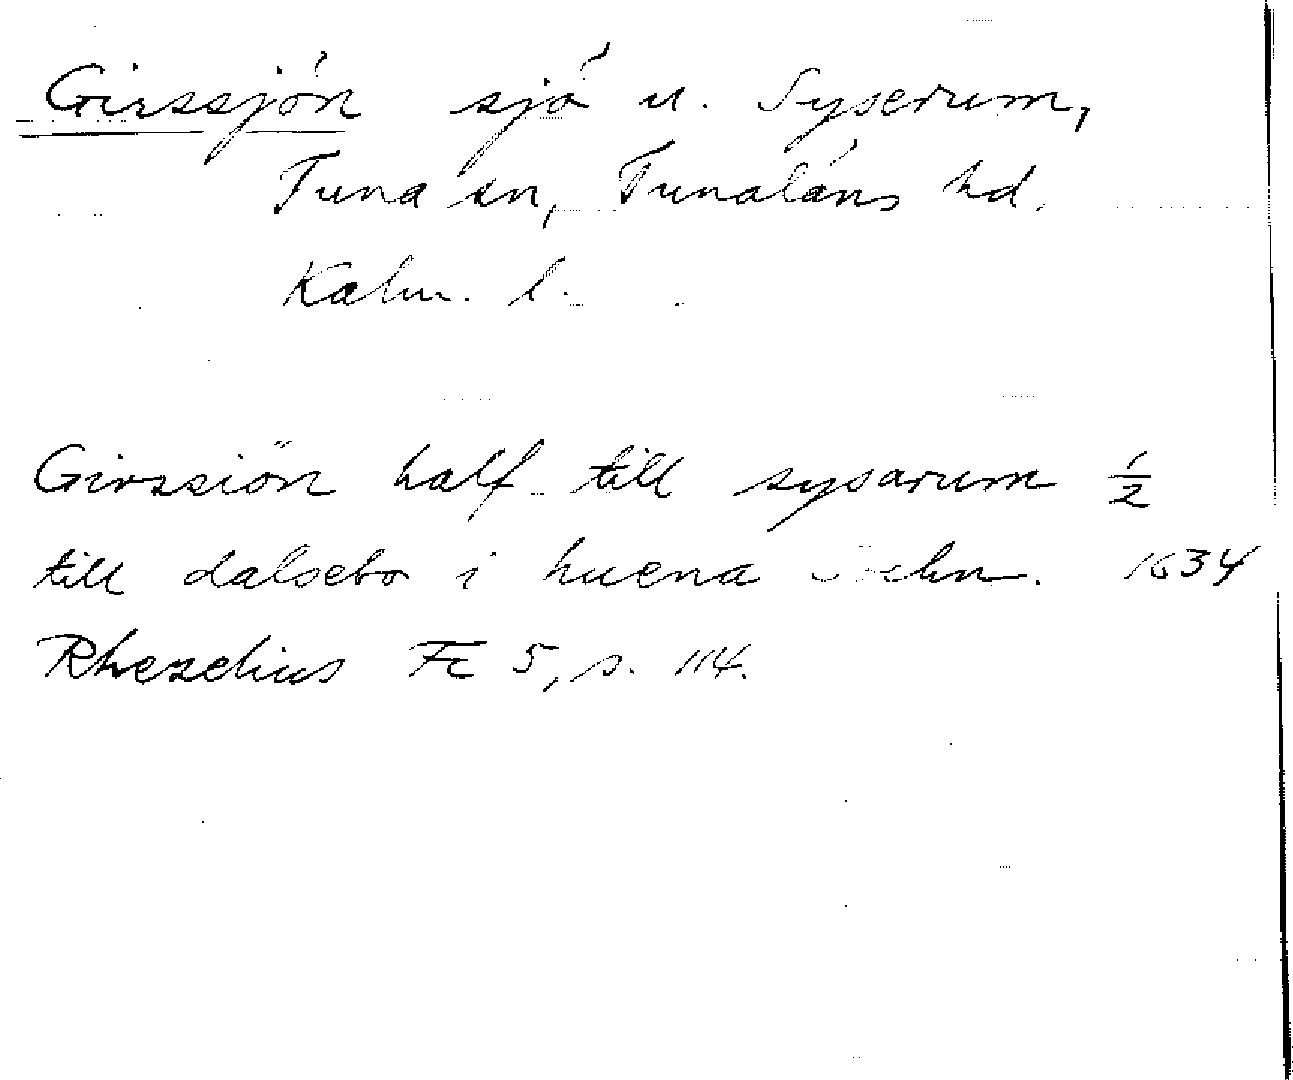 Girssjön sjö u. Syserum,
Tuna sn, Tunaläns hd.
Kalm. l.
Girssiön half till sysarum ½
till dalsebo i huena 1634
Rhezelius Fc 5, s. 114.